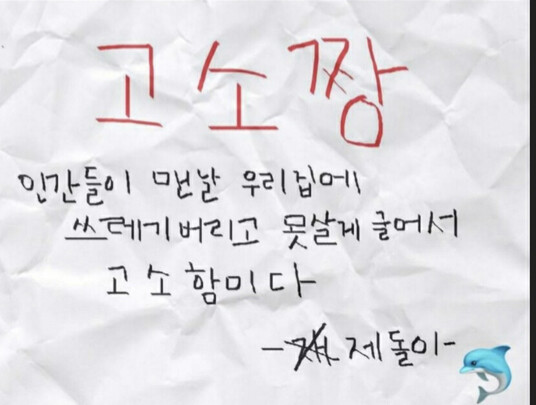 고소짱
인간들이 맨날 우리집에
쓰레기버리고 못살게 굴어서
고소함미다
- 제돌이-